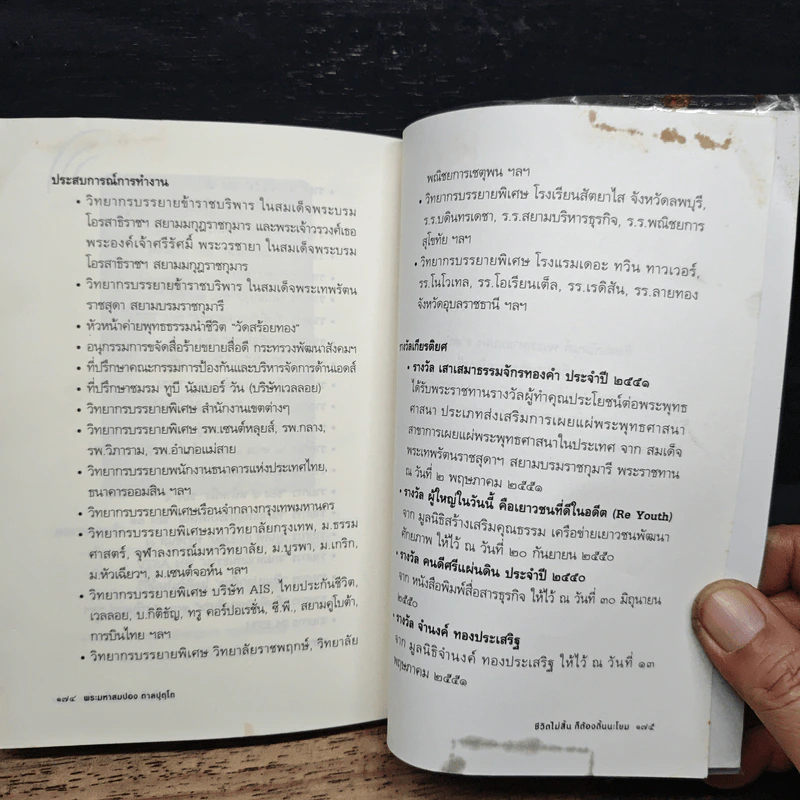 ประสบการณ์การทำงาน
• วิทยากรบรรยายข้าราชบริพาร ในสมเด็จพระบรม
โอรสาธิราชฯ สยามมกุฎราชกุมาร และพระเจ้าวรวงศ์เธอ
พระองค์เจ้าศรีรัศมิ์ พระวรชายา ในสมเด็จพระบรม
โอรสาธิราชฯ สยามมกุฎราชกุมาร
• วิทยากรบรรยายข้าราชบริพาร ในสมเด็จพระเทพรัตน
ราชสุดา สยามบรมราชกุมารี
• หัวหน้าค่ายพุทธธรรมนำชีวิต "วัดสร้อยทอง"
• อนุกรรมการขจัดสื่อร้ายขยายสื่อดี กระทรวงพัฒนาสังคมฯ
• ที่ปรึกษาคณะกรรมการป้องกันและบริหารจัดการด้านเอดส์
• ที่ปรึกษาชมรม ทูบี นัมเบอร์ วัน (บริษัทเวลลอย)
• วิทยากรบรรยายพิเศษ สำนักงานเขตต่างๆ
• วิทยากรบรรยายพิเศษ รพ.เซนต์หลุยส์, รพ.กลาง,
รพ.วิภาราม, รพ.อำเภอแม่สาย
• วิทยากรบรรยายพนักงานธนาคารแห่งประเทศไทย,
ธนาคารออมสิน ฯลฯ
• วิทยากรบรรยายพิเศษเรือนจำกลางกรุงเทพมหานคร
• วิทยากรบรรยายพิเศษมหาวิทยาลัยกรุงเทพ, ม.ธรรม
ศาสตร์, จุฬาลงกรณ์มหาวิทยาลัย, ม.บูรพา, ม.เกริก,
ม.หัวเฉียวฯ, ม.เซนต์จอห์น ฯลฯ
• วิทยากรบรรยายพิเศษ บริษัท AIS, ไทยประกันชีวิต,
เวลลอย, บ.กิติชัญ, ทรู คอร์ปอเรชั่น, ซี.พี., สยามคูโบต้า,
การบินไทย ฯลฯ
• วิทยากรบรรยายพิเศษ วิทยาลัยราชพฤกษ์, วิทยาลัย
๑๗๔ พระมหาสมปอง ตาลปุตฺโต
พณิชยการเชตุพน ฯลฯ
• วิทยากรบรรยายพิเศษ โรงเรียนสัตยาไส จังหวัดลพบุรี,
ร.ร.บดินทรเดชา, ร.ร.สยามบริหารธุรกิจ, ร.ร.พณิชยการ
สุโขทัย ฯลฯ
• วิทยากรบรรยายพิเศษ โรงแรมเดอะ ทวิน ทาวเวอร์,
รร.โนโวเทล, รร.โอเรียนเต็ล, รร.เรดิสัน, รร.ลายทอง
จังหวัดอุบลราชธานี ฯลฯ
รางวัลเกียรติยศ
• รางวัล เสาเสมาธรรมจักรทองคำ ประจำปี ๒๕๕๑
ได้รับพระราชทานรางวัลผู้ทำคุณประโยชน์ต่อพระพุทธ
ศาสนา ประเภทส่งเสริมการเผยแผ่พระพุทธศาสนา
สาขาการเผยแผ่พระพุทธศาสนาในประเทศ จาก สมเด็จ
พระเทพรัตนราชสุดาฯ สยามบรมราชกุมารี พระราชทาน
ณ วันที่ ๒ พฤษภาคม ๒๕๕๑
• รางวัล ผู้ใหญ่ในวันนี้ คือเยาวชนที่ดีในอดีต (Re Youth)
จาก มูลนิธิสร้างเสริมคุณธรรม เครือข่ายเยาวชนพัฒนา
ศักยภาพ ให้ไว้ ณ วันที่ ๒๐ กันยายน ๒๕๕๐
• รางวัล คนดีศรีแผ่นดิน ประจำปี ๒๕๕๐
จาก หนังสือพิมพ์สื่อสารธุรกิจ ให้ไว้ ณ วันที่ ๓๐ มิถุนายน
๒๕๕๐
• รางวัล จำนงค์ ทองประเสริฐ
จาก มูลนิธิจำนงค์ ทองประเสริฐ ให้ไว้ ณ วันที่ ๑๓
พฤษภาคม ๒๕๕๑
ชีวิตไม่สิ้น ก็ต้องดิ้นนะโยม ๑๗๕